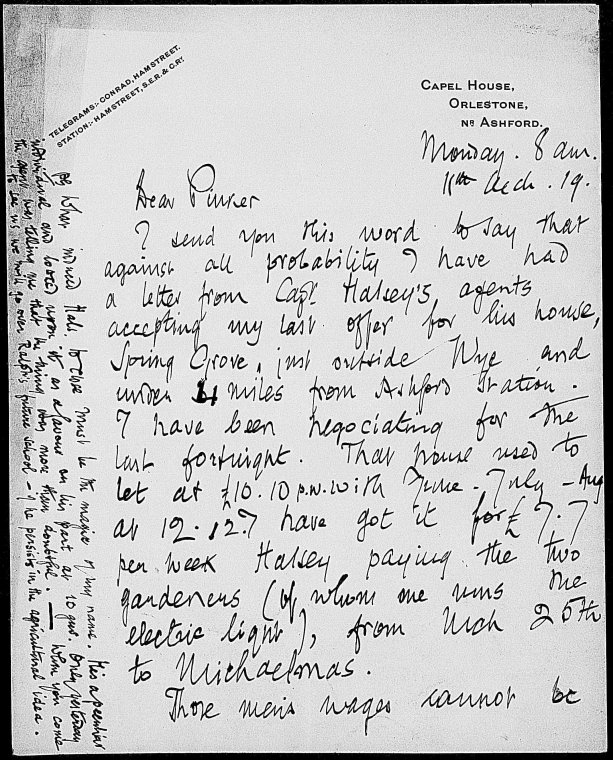 TELEGRAMS:- CONRAD, HAMSTREET.
STATION:- HAMSTREET, S.E.R. & C.RY.
CAPEL HOUSE,
ORLESTONE,
NR ASHFORD.
Monday. 8 am.
11th Mch. 19.
Dear Pinker
I send you this word to say that
against all probability I have had
a letter from Capt Halsey's agents
accepting my last offer for his house,
Spring Grove, just outside Wye and
under 4 miles from Ashford Station.
I have been negociating for the
last fortnight. That house used to
let at £10.10 p.w. with June - July - Aug
at 12.12. I have got it for £7.7
per week Halsey paying the two
gardeners (of whom one runs the
electric light), from Mch 25th
to Michaelmas.
Those men's wages cannot be
PS What moved Hal. to close must be the magic of my name. He is a peculiar
individual and looked upon it as a favour on his part at 10 gns. Only yesterday
the agent was telling me that he was very more than doubtful. — When you come
to see us we mth go over Ralph's future school – if he persists in the agricultural idea.